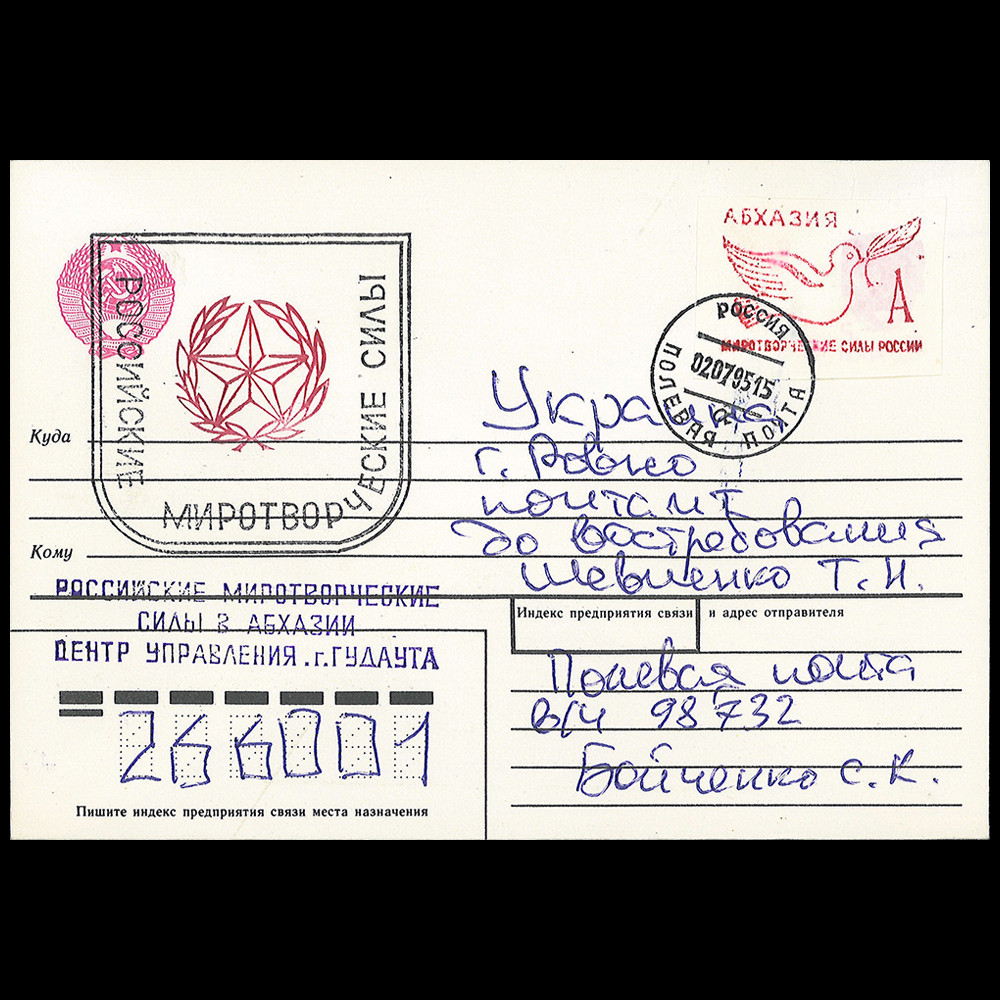 АБХАЗИЯ
А
МИРОТВОРЧЕСКИЕ СИЛЫ РОССИИ
РОССИЯ
02079515
ПОЛЕВАЯ ПОЧТА
РОССИЙСКИЕ
МИРОТВОРЧЕСКИЕ СИЛЫ
Куда
Украина
г. Ровно
почтамт
Кому
до востребования
Шевченко Т. Н.
РОССИЙСКИЕ МИРОТВОРЧЕСКИЕ
СИЛЫ В АБХАЗИИ
ЦЕНТР УПРАВЛЕНИЯ. г. ГУДАУТА
Индекс предприятия связи и адрес отправителя
Полевая почта
в/ч 98732
Бойченко С. К.
266001
Пишите индекс предприятия связи места назначения